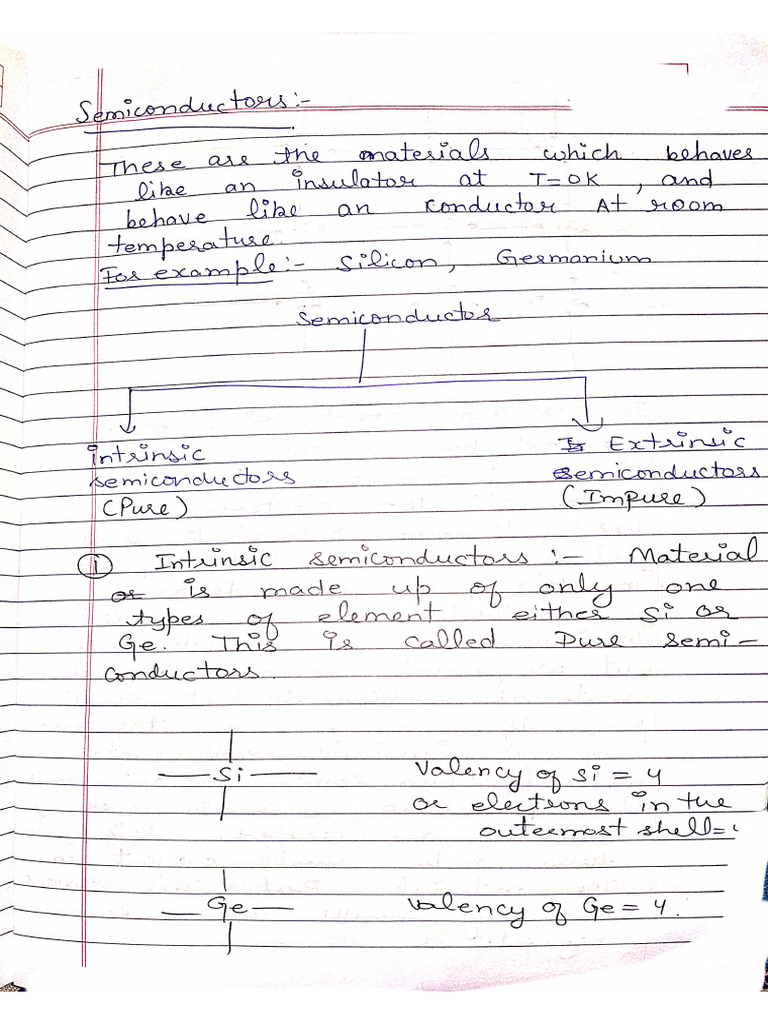 Semiconductors:-
These are the materials which behaves
like an insulator at T=0K, and
behave like an conductor At room
temperature.
For example:- Silicon, Germanium
Semiconductor
Intrinsic
semiconductors
(Pure)
Extrinsic
semiconductors
(Impure)
① Intrinsic semiconductors:- Material
is made up of only one
types of element either Si or
Ge. This is called Pure semi-
conductors.
Si
Valency of Si = 4
or electrons in the
outermost shell=
Ge
Valency of Ge = 4.